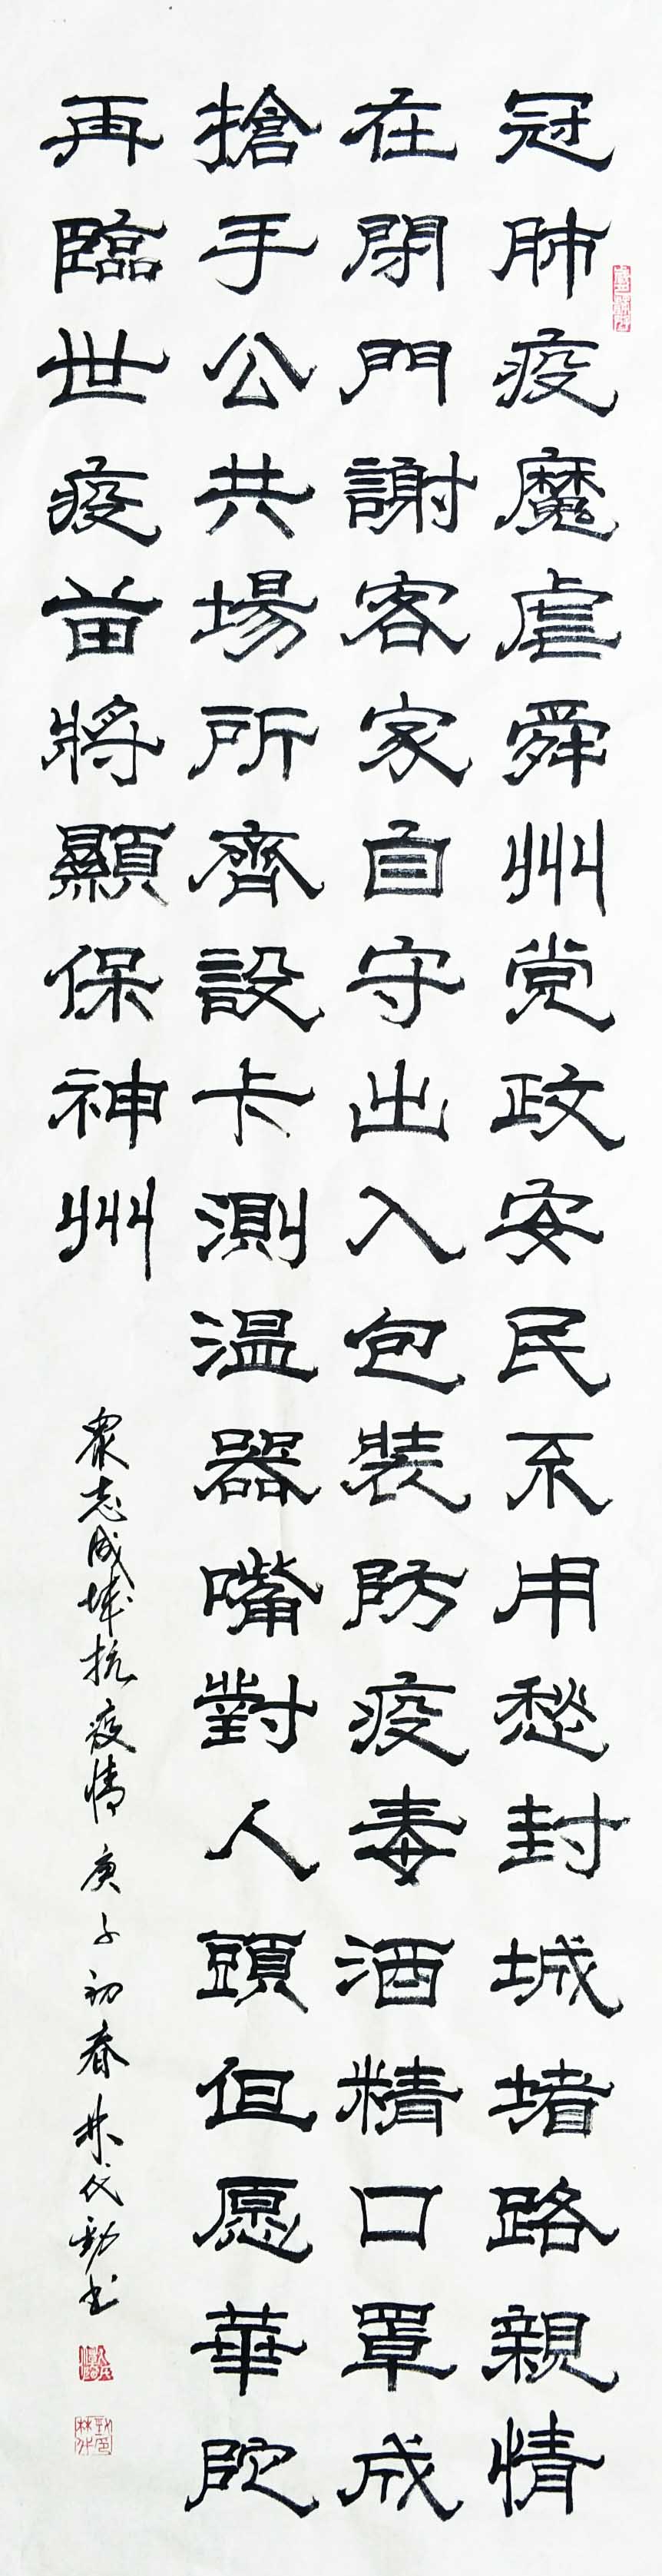 冠肺疫魔虐舜州党政安民不用愁封城堵路親情
在閉門謝客家自守出入包裝防疫毒酒精口罩成
搶手公共場所齊設卡測温器嘴對人頭但愿華陀
再臨世疫苗將顯保神州
衆志成城抗疫情 庚子初春 林代书